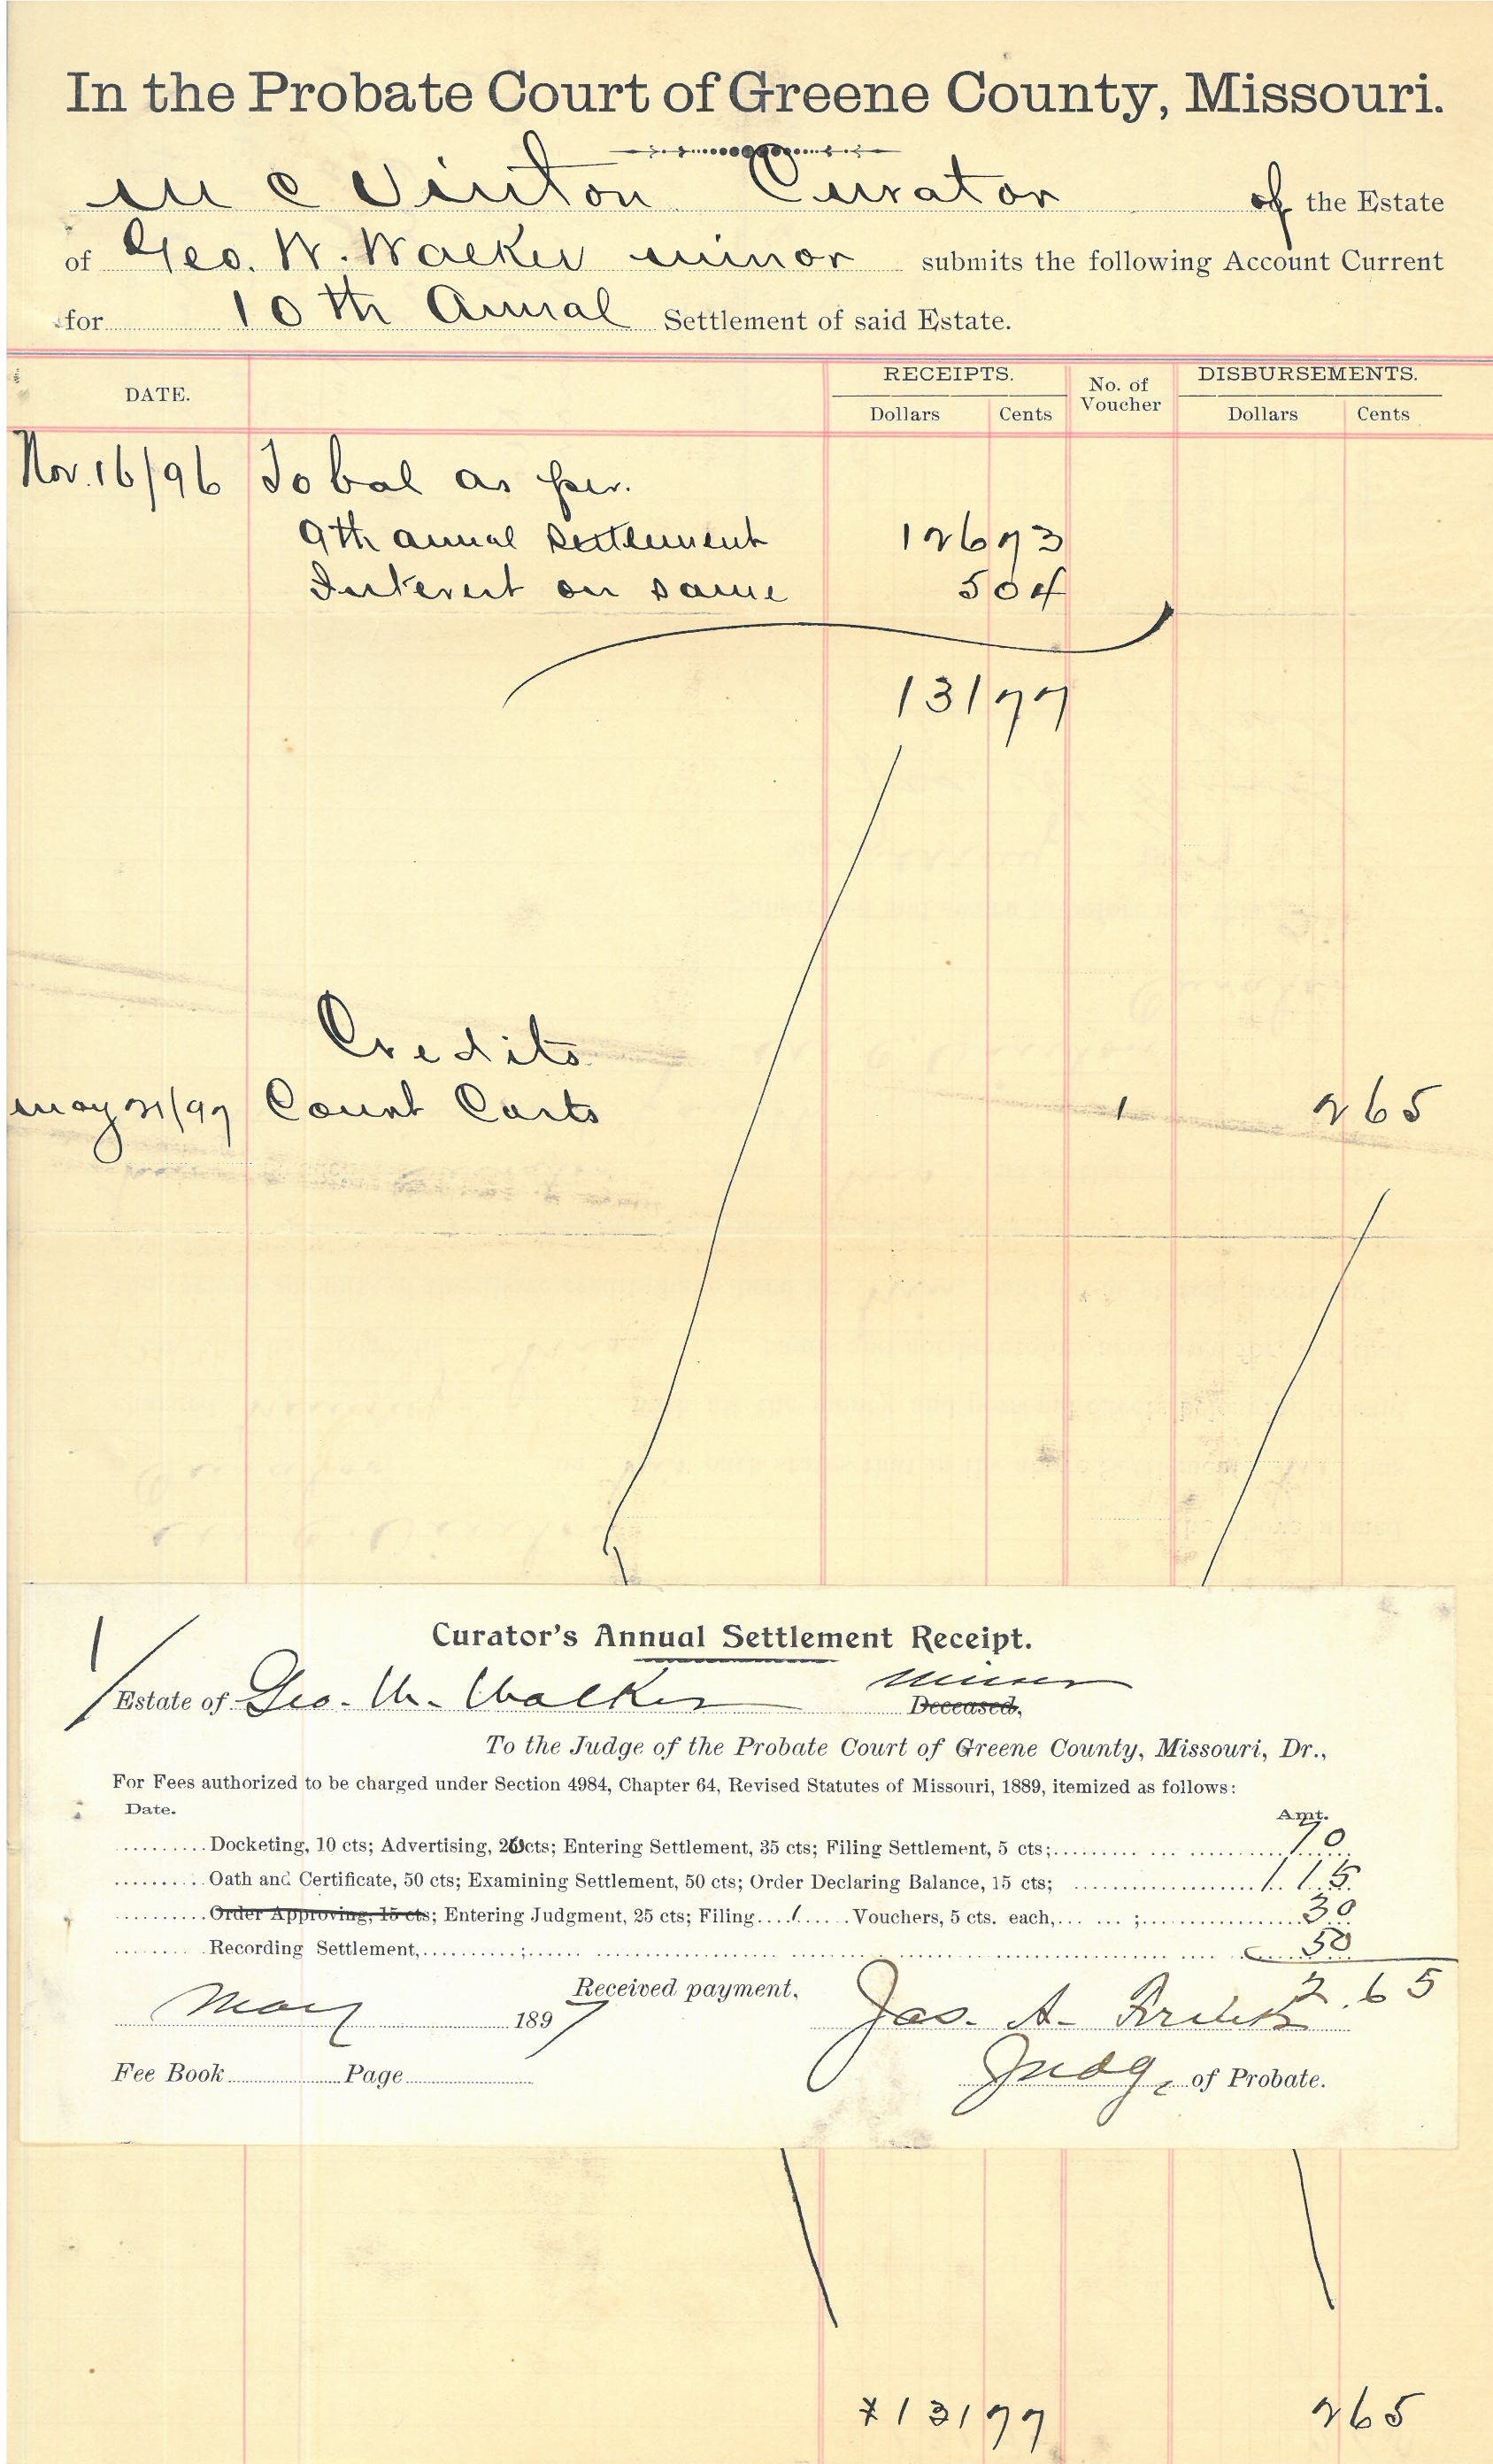 In the Probate Court of Greene County, Missouri.
M C Vinton Curator of the Estate
of Geo. W. Walker minor submits the following Account Current
for 10th Annal Settlement of said Estate.
DATE. RECEIPTS. No. of Voucher DISBURSEMENTS.
Dollars Cents Dollars Cents
Nov. 16/96 To bal as per.
9th annual settlement 126 73
Interest on same 5 04
131 77
Credits
May 21/97 Court Costs 1 2 65
1/
Curator's Annual Settlement Receipt.
Estate of Geo. W. Walker Minor Deceased,
To the Judge of the Probate Court of Greene County, Missouri, Dr.,
For Fees authorized to be charged under Section 4984, Chapter 64, Revised Statutes of Missouri, 1889, itemized as follows:
Date. Amt.
Docketing, 10 cts; Advertising, 20 cts; Entering Settlement, 35 cts; Filing Settlement, 5 cts; 70
Oath and Certificate, 50 cts; Examining Settlement, 50 cts; Order Declaring Balance, 15 cts; 1.15
Order Approving, 15 cts; Entering Judgment, 25 cts; Filing 1 Vouchers, 5 cts. each, ; 30
Recording Settlement, ; 50
2.65
May 1897 Received payment, Jas. A.
Fee Book Page Judge of Probate.
131 77 2 65